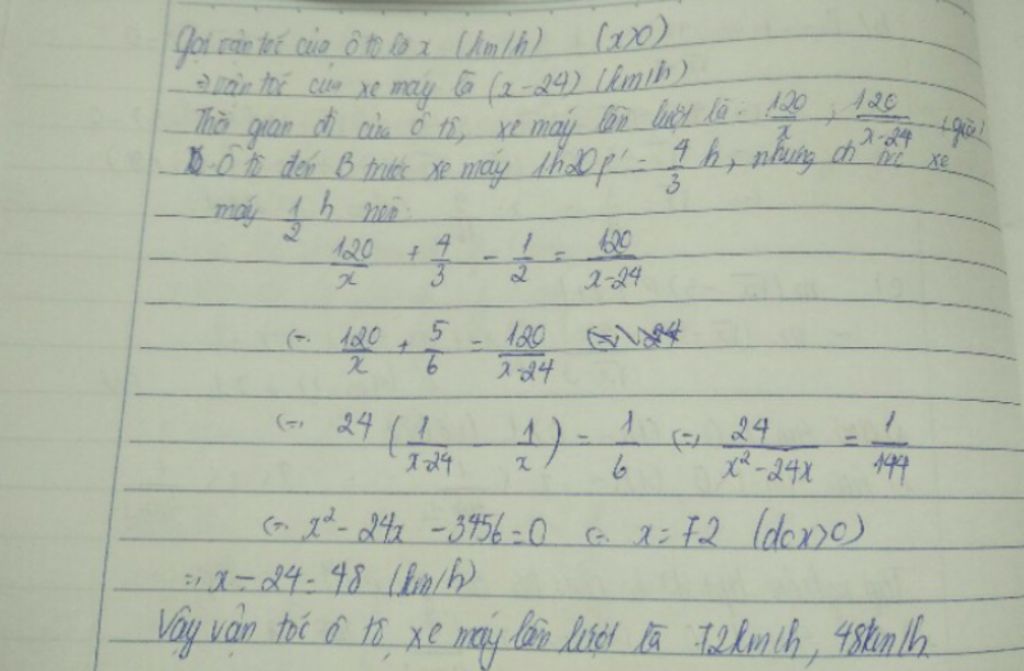 Gọi vận tốc của ô tô là x (km/h) (x>0)
⇒ vận tốc của xe máy là (x-24) (km/h)
Thời gian đi của ô tô, xe máy lần lượt là 120/x , 120/(x-24) (giờ)
Ô tô đến B trước xe máy 1h20p' = 4/3 h, nhưng đi xe
máy 1/2 h nên:
120/x + 4/3 - 1/2 = 120/(x-24)
⇔ 120/x + 5/6 = 120/(x-24)
⇔ 24 (1/(x-24) - 1/x) = 1/6 ⇔ 24/(x²-24x) = 1/144
⇔ x² - 24x - 3456 = 0 ⇔ x = 72 (do x>0)
⇒ x - 24 = 48 (km/h)
Vậy vận tốc ô tô, xe máy lần lượt là 72km/h, 48km/h.